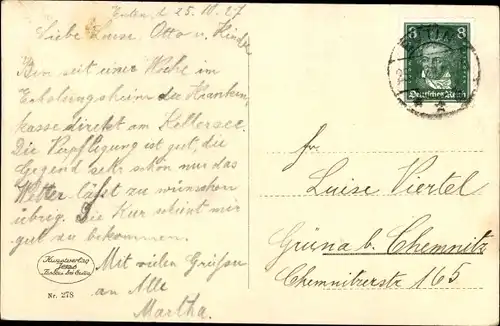 Eutin, d. 25.IV.27
Liebe Luise, Otto u. Kinder
Bin seit einer Woche im
Erholungsheim der Kranken-
kasse direkt am Kellersee.
Die Verpflegung ist gut, die
Gegend sehr schön nur das
Wetter läßt zu wünschen
übrig. Die Kur scheint mir
gut zu bekommen.
Mit vielen Grüßen
an Alle
Martha.
Kunstverlag
Nr. 278
8 8
Deutsches Reich
EUTIN
Fr.
Luise Viertel
Grüna b. Chemnitz
Chemnitzerstr 165